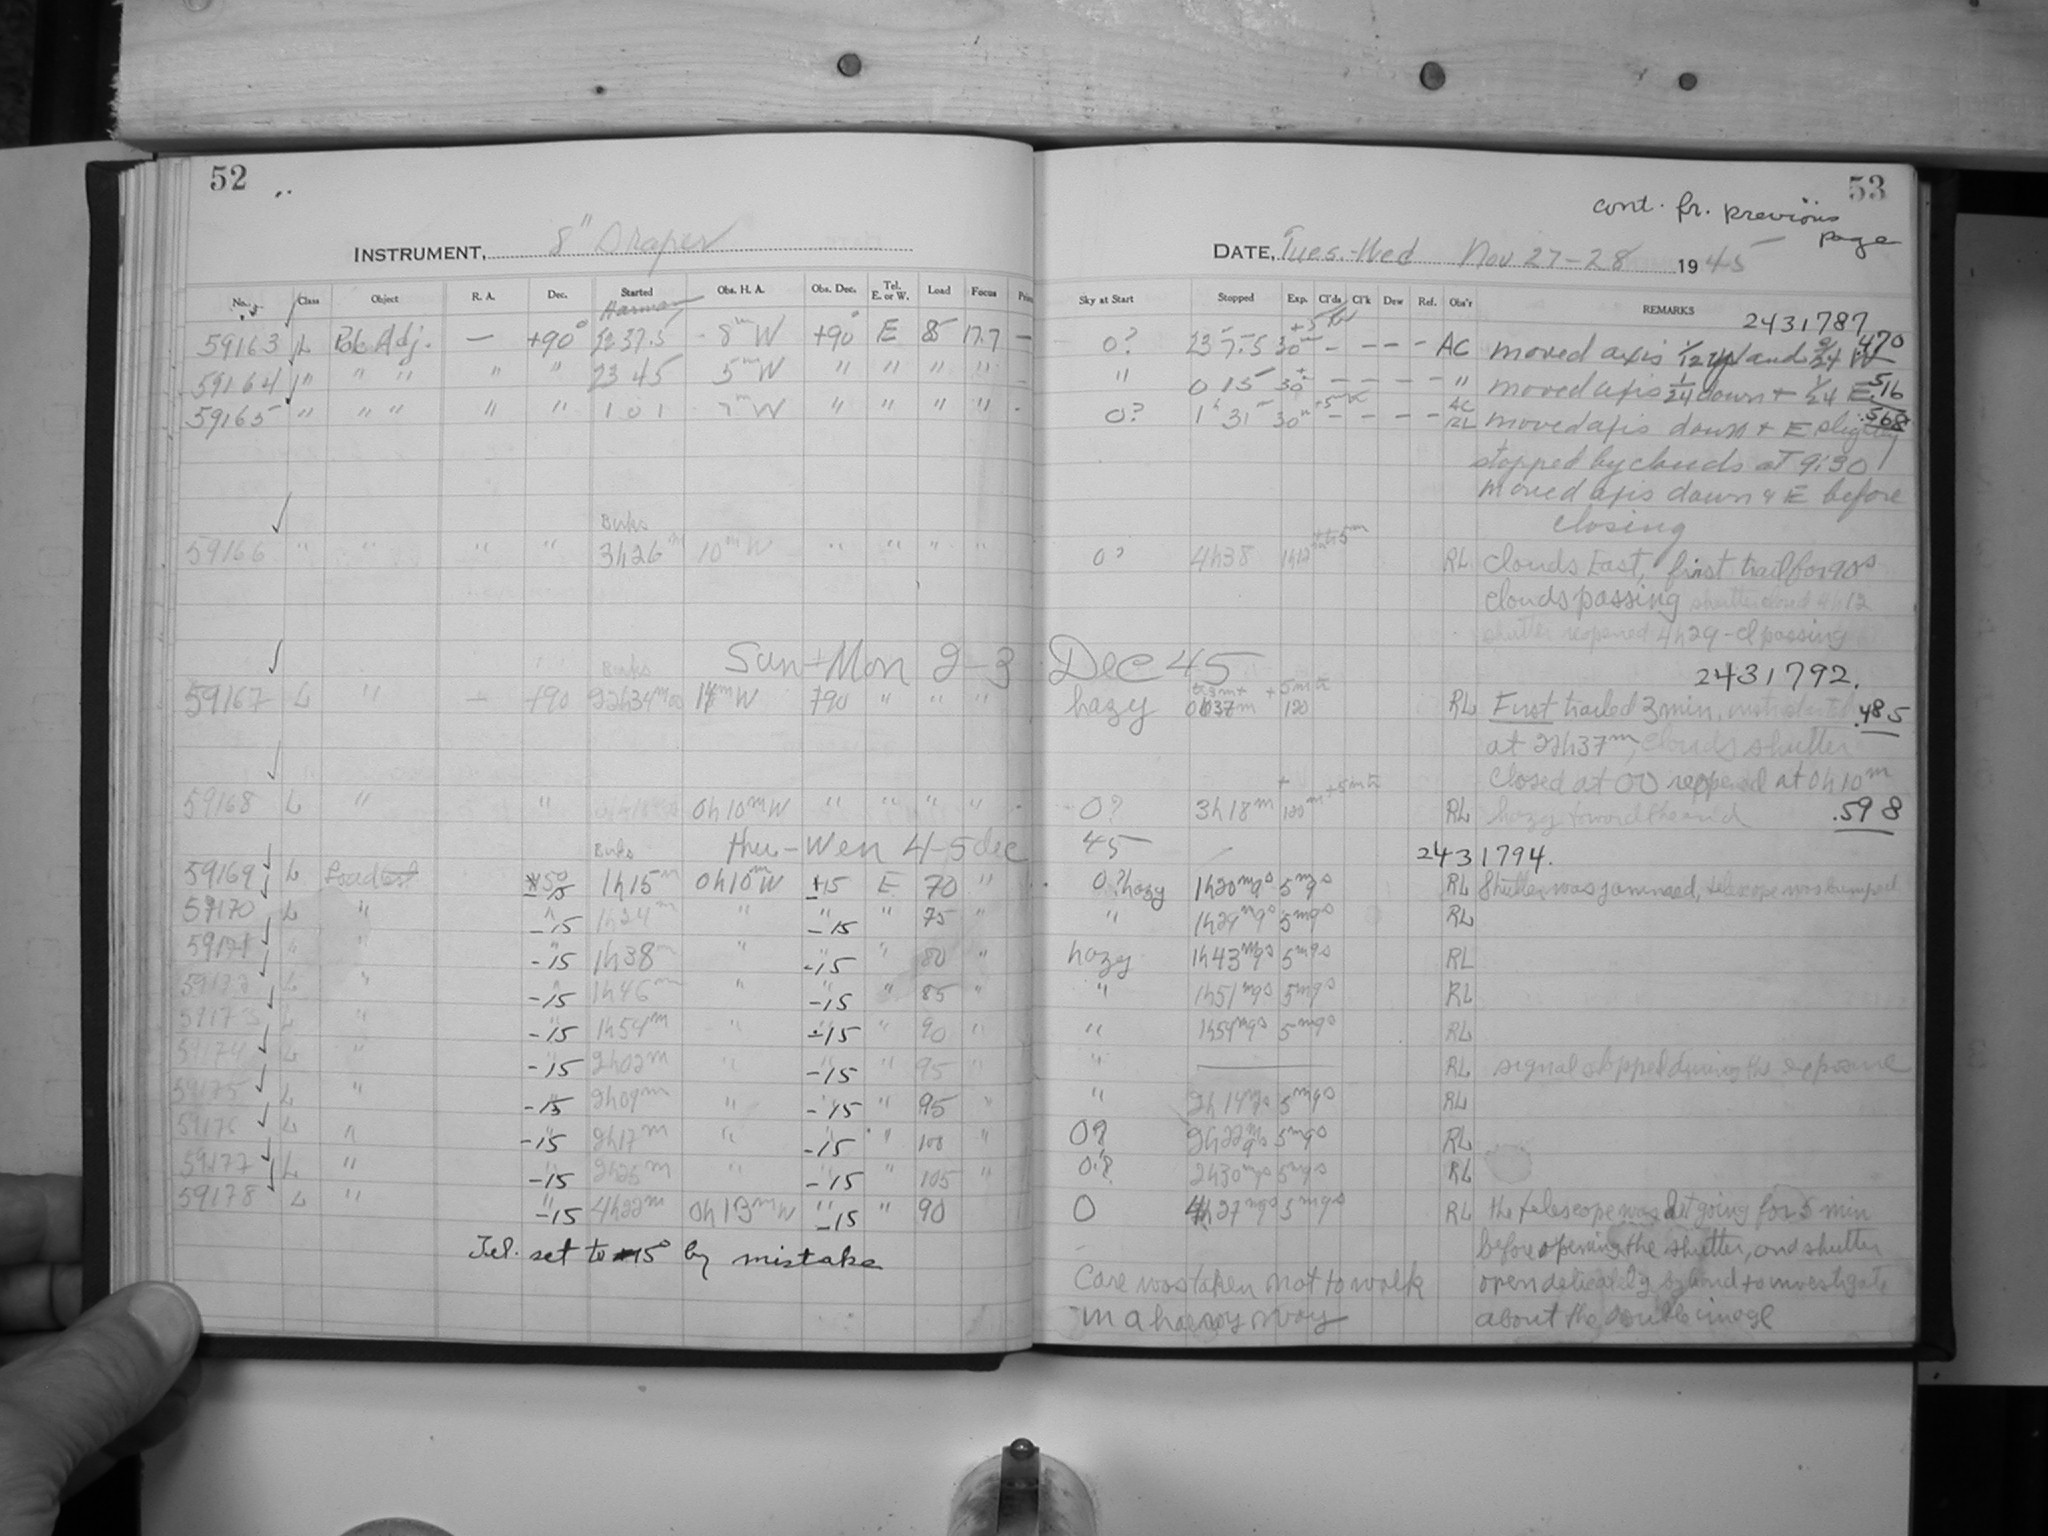 52
INSTRUMENT, 8" Draper
No. Class Object R. A. Dec. Started Obs. H. A. Obs. Dec. Tel. E. or W. Load Focus
59163 L Pole Adj. — +90° 23 37.5 8m W +90° E 85 17.7 —
59164 " " " " " 23 45 5m W " " " "
59165 " " " " " 1 01 7m W " " " "
Burks
59166 " " " " 3h26m 10m W " " " "
Sun + Mon 2-3 Dec 45
Burks
59167 L " — +90 22h34m 14m W +90 " " "
59168 L " " 0h10m W " " " "
Thu-Wen 4-5 dec 45
Burks
59169 L Load test -15 1h15m 0h10m W ±15 E 70 "
59170 L " -15 1h24m " -15 " 75 "
59171 " " -15 1h38m " -15 " 80 "
59172 L " -15 1h46m " -15 " 85 "
59173 L " -15 1h54m " -15 " 90 "
59174 L " -15 2h02m " -15 " 95 "
59175 L " -15 2h09m " -15 " 95 "
59176 L " -15 2h17m " -15 " 100 "
59177 L " -15 2h25m " -15 " 105 "
59178 L " -15 4h22m 0h13m W -15 " 90
Tel. set to 15° by mistake
53
cont. fr. previous
page
DATE, Tues.-Wed Nov 27-28 1945
Sky at Start Stopped Exp. Cl'ds Cl'k Dew Ref. Obs'r REMARKS
2431787
0? 30m — — — — AC moved axis 1/12 up and 2/24 W .470
" 0 15 30 — — — — " moved axis 1/24 down + 1/24 E .516
0? 1h 31 30m — — — — AC RL moved axis down + E slightly .568
stopped by clouds at 9:30
moved axis down & E before
closing
0? 4h38 1h12 RL Clouds East, first trail for 90s
clouds passing shutter closed 4h12
shutter reopened 4h29 - cl passing
2431792.
hazy 0h37m 120 RL First trailed 3 min, .485
at 22h37m, clouds shutter
closed at 00 reopened at 0h10m
0? 3h18m 120m RL hazy toward the end .598
2431794.
0? hazy 1h20m9s 5m9s RL Shutter was jammed, telescope was bumped
" 1h29m9s 5m9s RL
hazy 1h43m9s 5m9s RL
" 1h51m9s 5m9s RL
" 1h59m9s 5m9s RL
" —— RL signal stopped during the exposure
" 2h14m9s 5m9s RL
0? 2h22m9s 5m9s RL
0? 2h30m9s 5m9s RL
0 4h27m9s 5m9s RL the telescope was let going for 5 min
before opening the shutter, and shutter
Care was taken not to walk open delicately by hand to investigate
in a heavy way about the double image